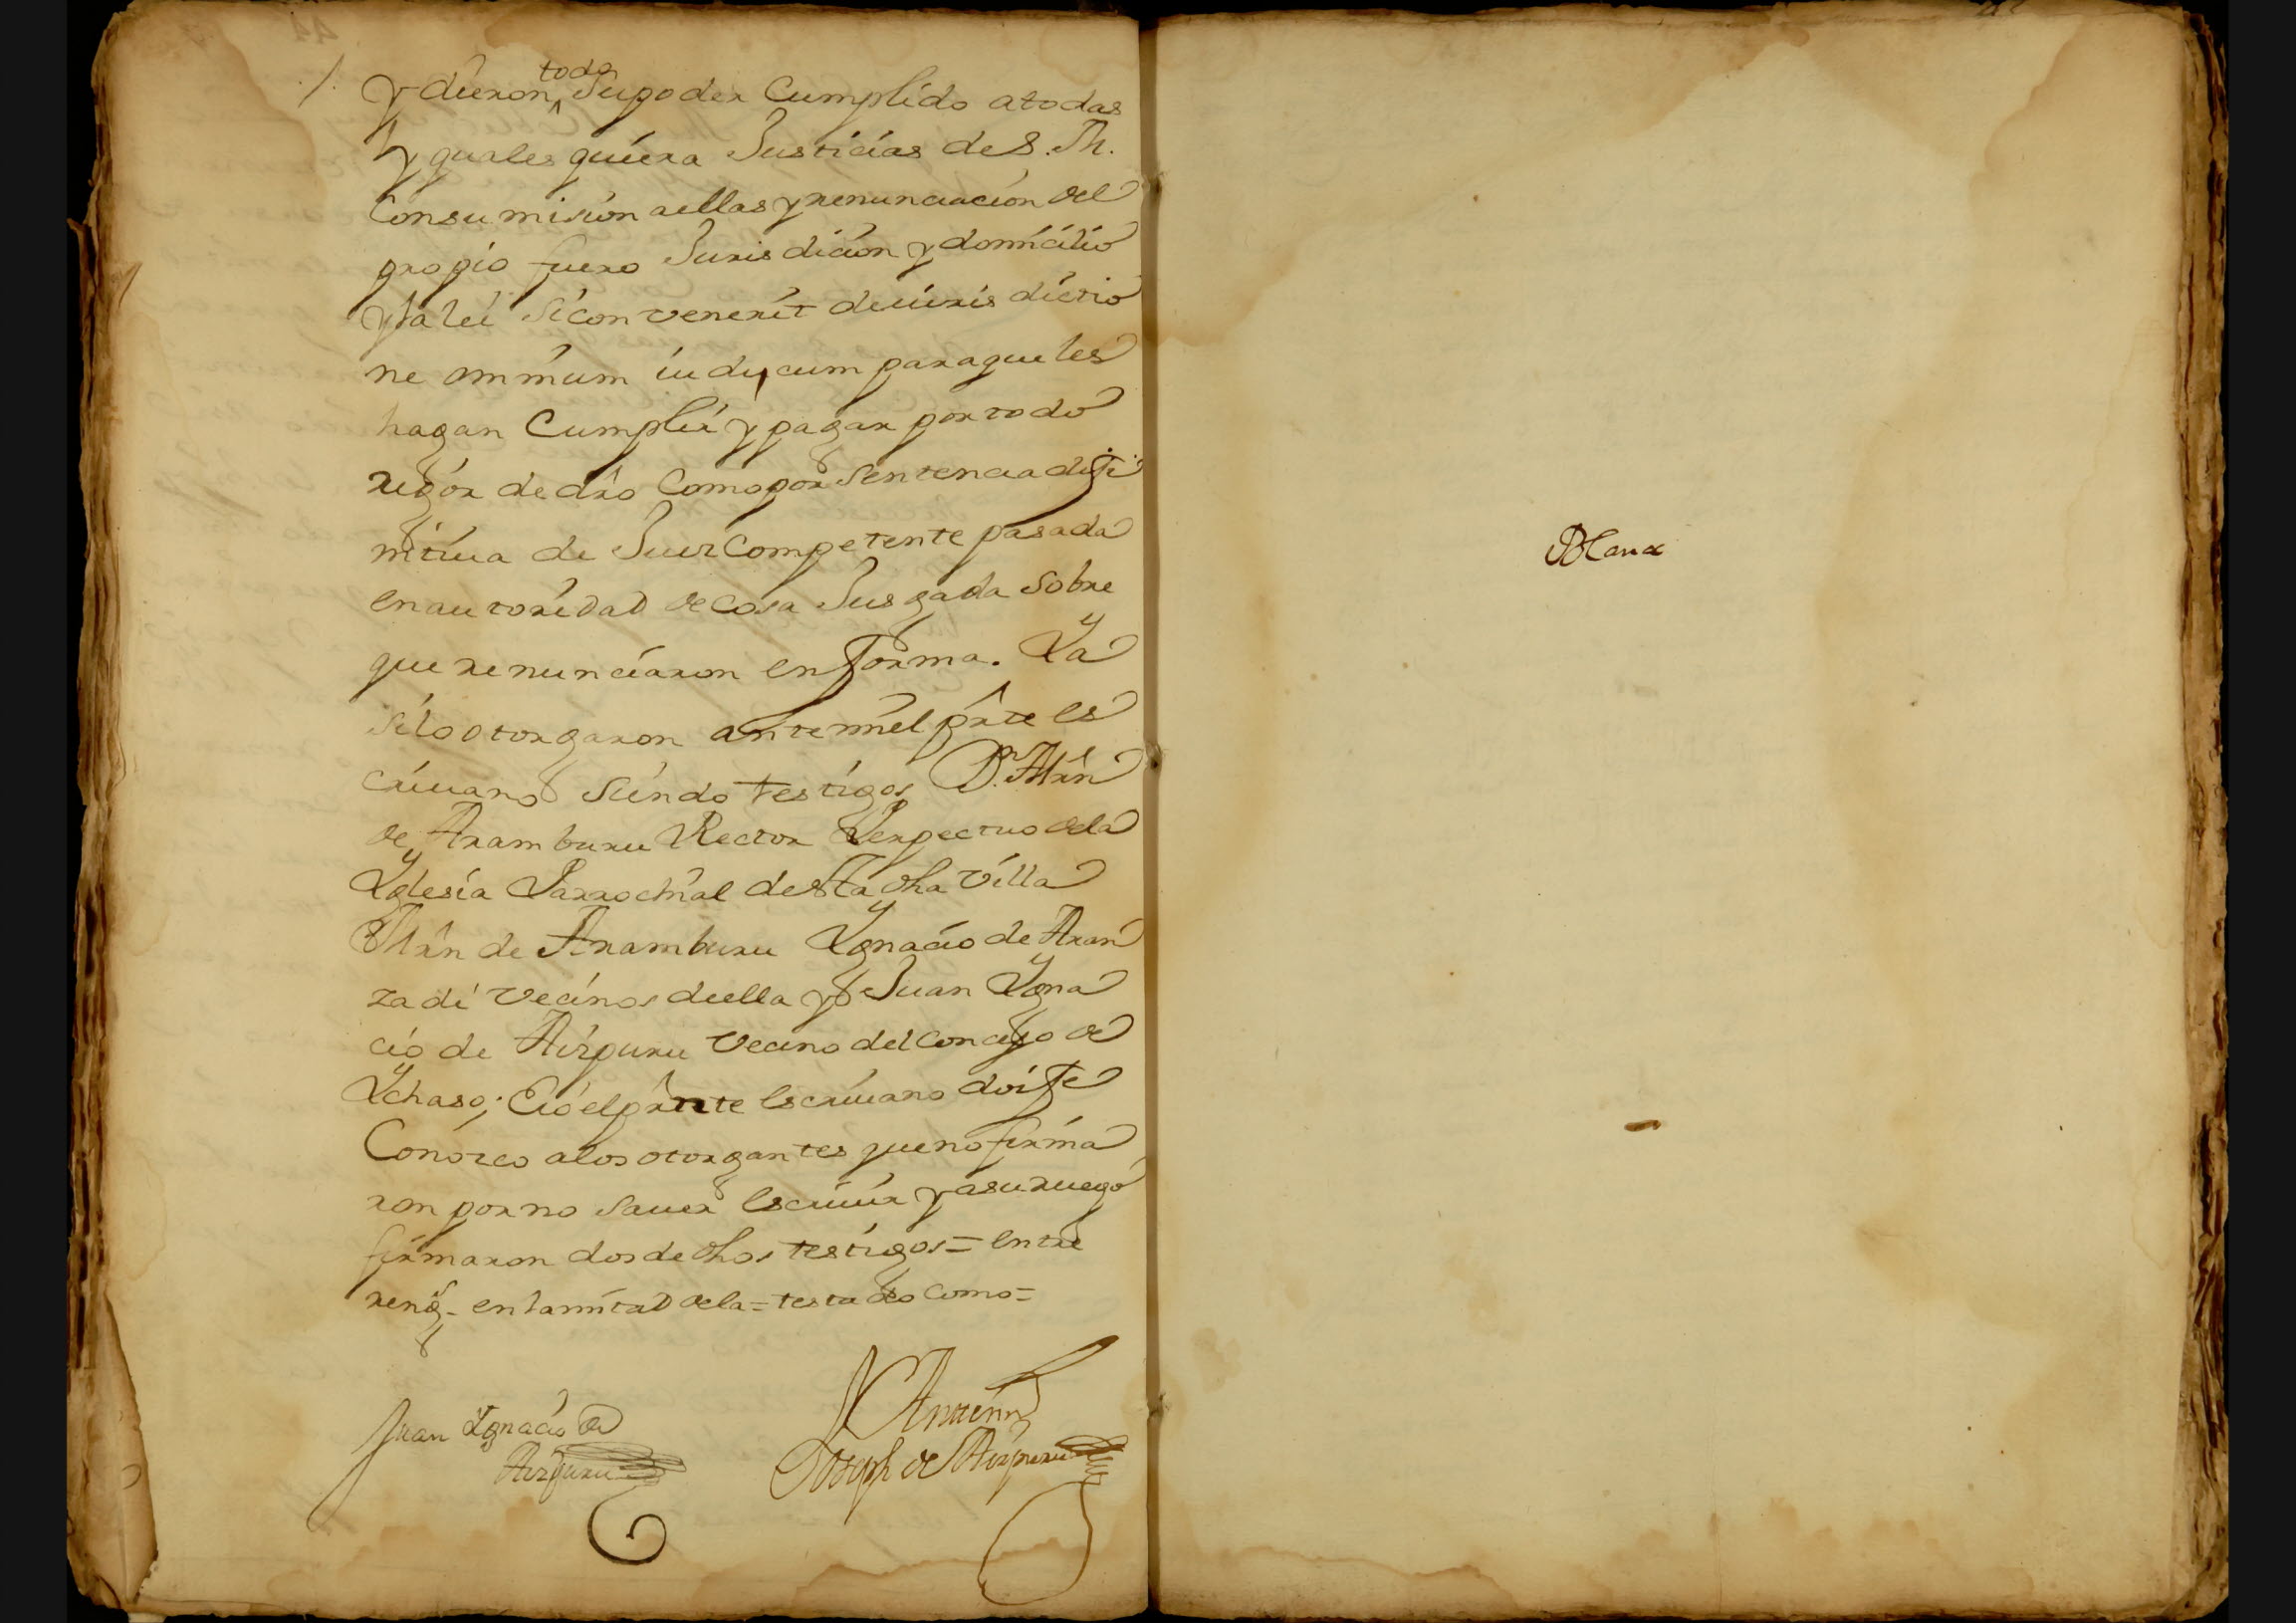 y dieron todo su poder Cumplido a todas
y quales quiera Justicias de S. M.
Con sumision a ellas y renunciacion del
propio fuero Jurisdicion y domicilio
y la lei si con venerit de iuris dictio
ne omnium iudicum para que les
hagan Cumplir y pagar por todo
rigor de dro Como por Sentencia difi
nitiua de Juez Competente pasada
en autoridad de Cosa Jusgada Sobre
que renunciaron en forma. Ya
si lo otorgaron ante mi el prte es
criuano Siendo testigos Dn. Mrn
de Aramburu Rector Perpectuo de la
Yglesia Parrochial de sta dha Villa
Mrn de Aramburu Ygnacio de Aran
zadi Vecinos de ella y Juan Ygna
cio de Aizpuru Vecino del Concejo de
Ychaso; E io el prnte escriuano doi fe
Conozco a los otorgantes que no firma
ron por no Sauer escriuir y a su ruego
firmaron dos de dhos testigos = entre
reng. en la mitad de la = testado Como =
Juan Ygnacio de
Aizpuru
Ante mi
Joseph de Aizpuru